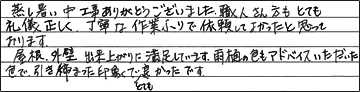 蒸し暑い中 工事ありがとうございました。職人さん方も とても
礼儀正しく、丁寧な作業ふりで依頼してよかったと思って
おります。
屋根、外壁 出来上がりに満足しています。雨樋の色もアドバイスいただいた
色で、引き締まった印象で良かったです。
とても